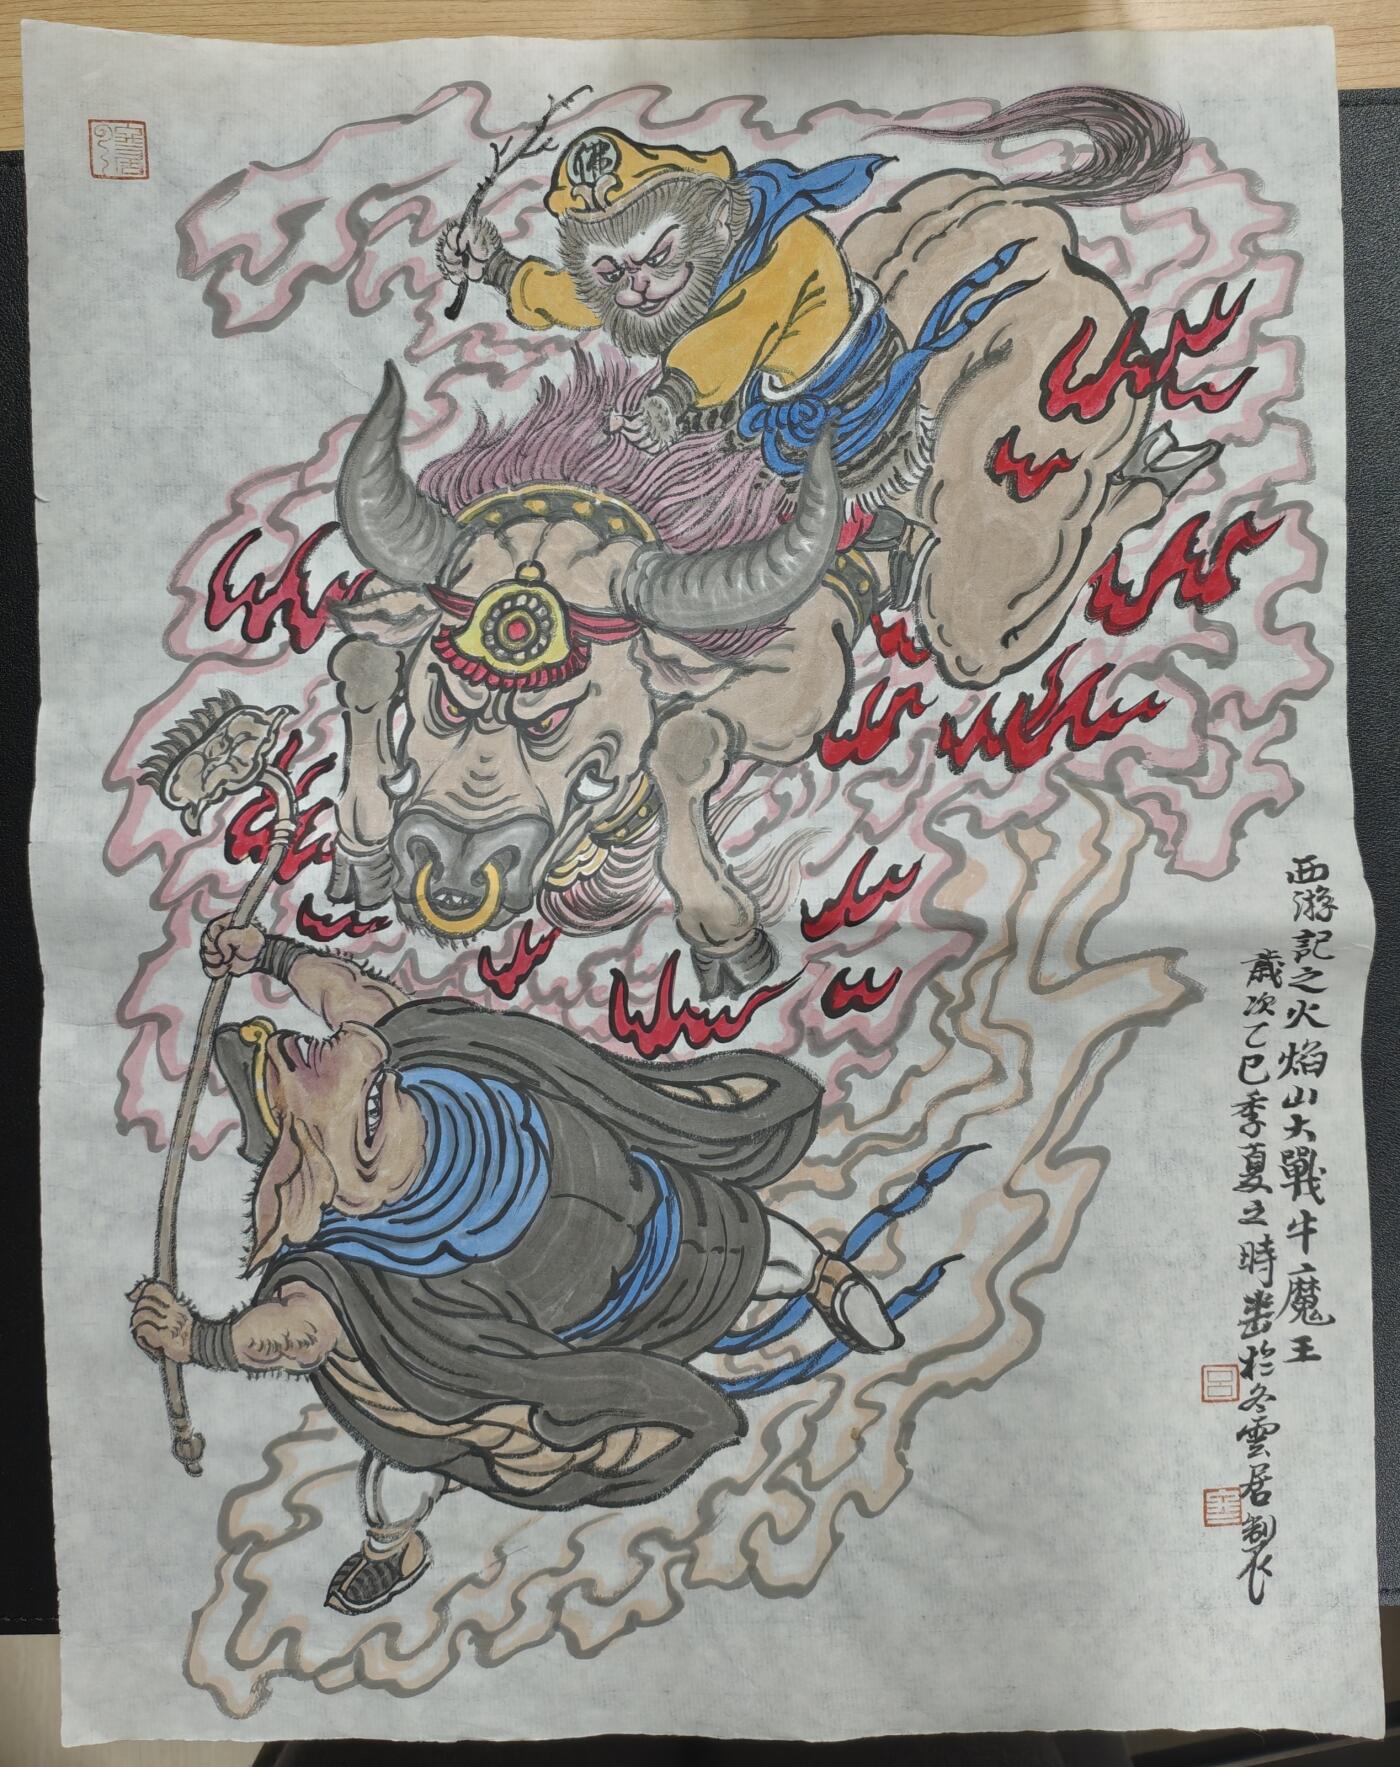 西游記之火焰山大戰牛魔王
歲次乙巳季夏之時 於冬雲居制作
佛